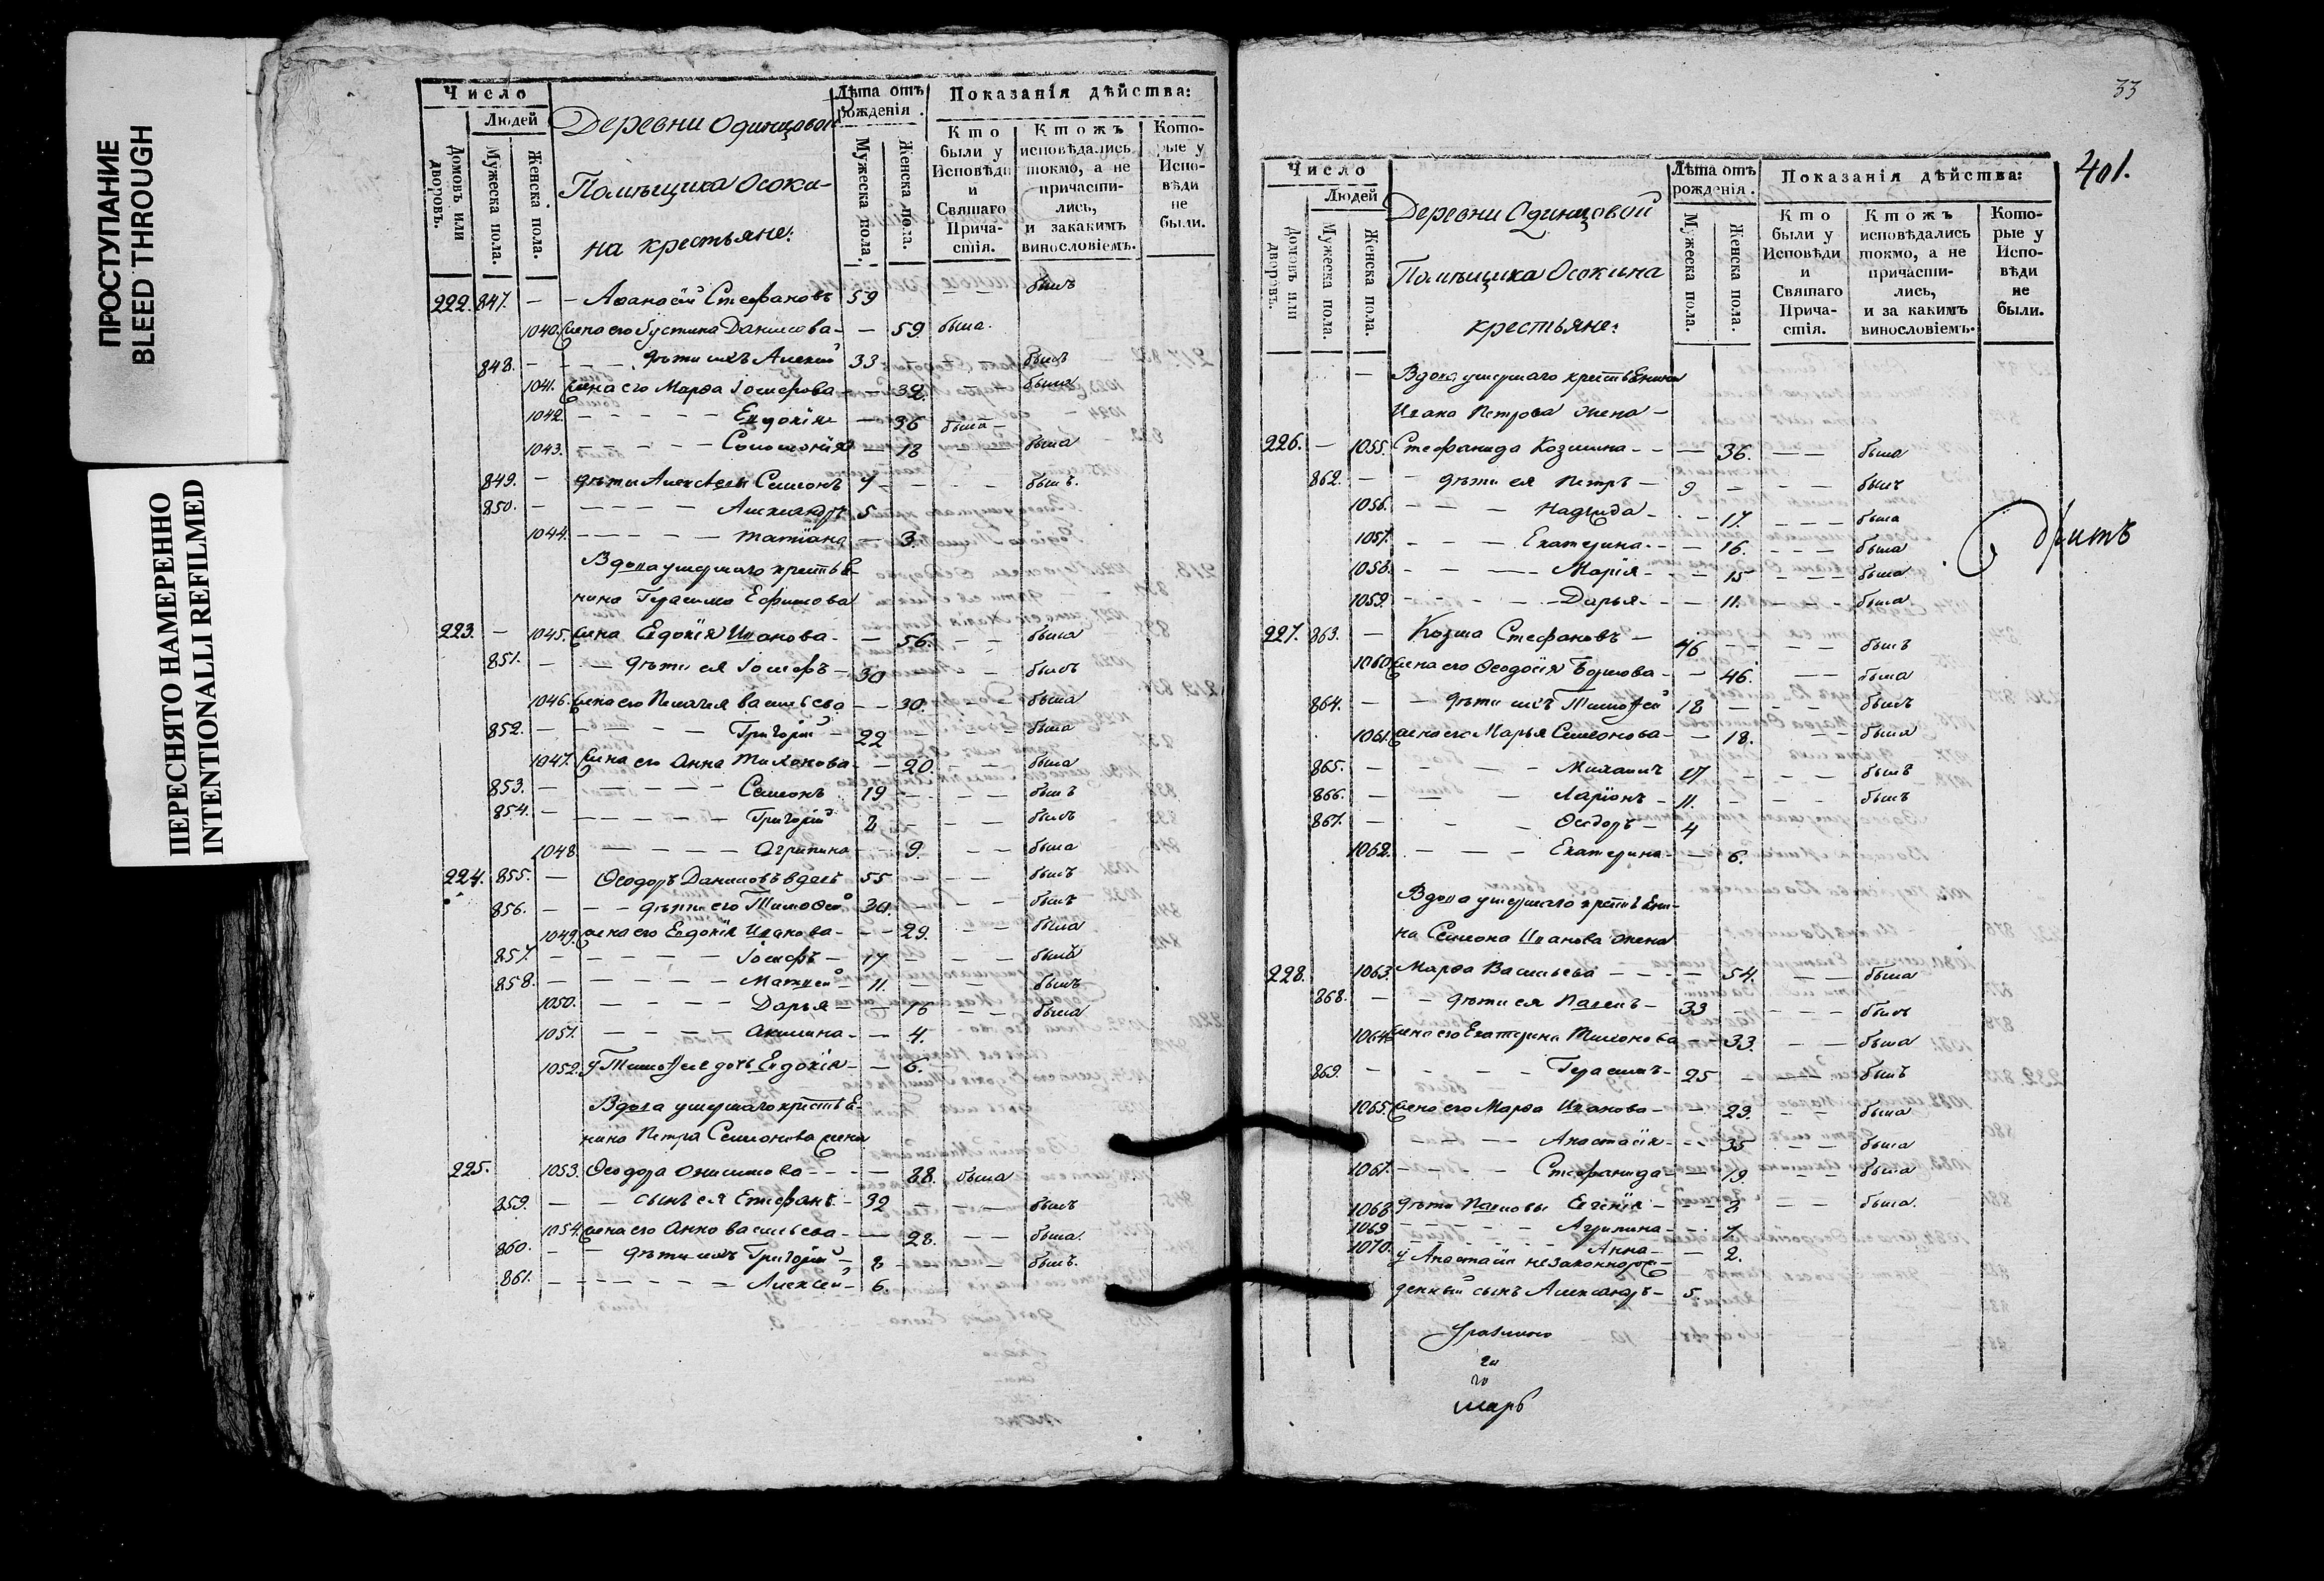 ПРОСТУПАНИЕ
BLEED THROUGH
ПЕРЕСНЯТО НАМЕРЕННО
INTENTIONALLI REFILMED
Число
Людей
Домовъ или дворовъ.
Мужеска пола.
Женска пола.
Деревни Одинцовой
Помѣщика Осоки-
на крестьяне:
Лѣта отъ рожденія.
Мужеска пола.
Женска пола.
Показанія дѣйства:
Кто были у Исповѣди и Святаго Прича-стія.
Ктожъ исповѣдались токмо, а не причасти-лись, и закакимъ винословіемъ.
Кото-рые у Испо-вѣди не были.
222. 847. — Аѳанасій Стефановъ 59 — — былъ
1040. жена его Іустина Данилова — — 59. была.
848. — — — дѣти ихъ Алексій 33 — былъ
1041. жена его Марѳа Іосифова — — 32. была
1042. — — — Евдокія — 36 была —
1043. — — — Соломонія — 18 была
849. — дѣти Алексѣевы Симеонъ 7 — — — былъ.
850. — — — — Александръ 5
1044. — — — — Татіана — 3.
Вдова умершаго крестьѣ-
нина Герасима Ефимова
223. — 1045. жена Евдокія Иванова — — 56. — — была
851. — — дѣти ея Іосифъ — 30 — — былъ
1046. жена его Пелагея Васильева — — 30. — — была
852. — — — — Григорій — 22 — — — была
1047. жена его Анна Тихонова — — 20. — — была
853. — — — — Симеонъ 19 — — — былъ
854. — — — — Григорій 2 — — — былъ
1048. — — — — Агрипина — — 9. — — была
224. 855. — Ѳеодоръ Даниловъ вдовъ 55 — — — былъ
856. — — дѣти его Тимоѳей 30. — — — былъ
1049. жена его Евдокія Иванова — — 29. — — была
857. — — — — Іосифъ — 17 — — — былъ
858. — — — — Матвей — 11. — — былъ
1050. — — — — Дарья — — 16 — — была
1051. — — — — Акилина — — 4.
1052. у Тимоѳея дочь Евдокія — — 6. —
Вдова умершаго крестьѣ-
нина Петра Симеонова жена
225. 1053. Ѳеодора Онисимова — — — 88. была
859. — — сынъ ея Стефанъ — 32 — — — былъ
1054. жена его Анна Васильева — — 28. — — была.
860. — — дѣти ихъ Григорій — 8 — — — былъ.
861. — — — — Алексей — 6.
33
401.
Число
Людей
Домовъ или дворовъ.
Мужеска пола.
Женска пола.
Деревни Одинцовой
Помѣщика Осокина
крестьяне:
Лѣта отъ рожденія.
Мужеска пола.
Женска пола.
Показанія дѣйства:
Кто были у Исповѣди и Святаго Прича-стія.
Ктожъ исповѣдались токмо, а не причасти-лись, и за какимъ винословіемъ.
Кото-рые у Испо-вѣди не были.
— Вдова умершаго крестьѣнина
Ивана Петрова жена —
226. — 1055. Стефанида Козмина — — — 36. — — была
862. — — дѣти ея Петръ — 9 — — — былъ
1056. — — — Надежда — — 17. — — — была
1057. — — — Екатерина — — 16. — — — была
1058. — — — Марія — — 15 — — — была
1059. — — — — Дарья — — 11. — — — была
227. 863. — Козма Стефановъ — 46 — — — былъ
1060. жена его Ѳеодосія Борисова — — 46. — — была
864. — — дѣти ихъ Тимоѳей 18 — — — былъ
1061. жена его Марья Симеонова — — 18. — — была
865. — — — — Михаилъ 17 — — — былъ
866. — — — Ларіонъ — 11. — — — былъ
867. — — — Ѳеодоръ — 4
1062. — — — Екатерина — — 6.
Вдова умершаго крестьѣни-
на Симеона Иванова жена
228. 1063. Марѳа Васильева — — — — 54. — — была
868. — — дѣти ея Павелъ — 33 — — — былъ
1064. жена его Екатерина Тимонова — — 33. — — была
869. — — — — Герасимъ — 25 — — — былъ
1065. жена его Марѳа Иванова — — 29. — — была
— — — — Анастасія — — 35 — — была
1067. — — — — Стефанида — — 19. — — была
1068. дѣти Павловы Евгенія — — 8 — — была.
1069 — — — — Агрипина — — 7.
1070. — — — — Анна — — 2.
у Анастасіи незаконнорож-
денный сынъ Александръ — 5